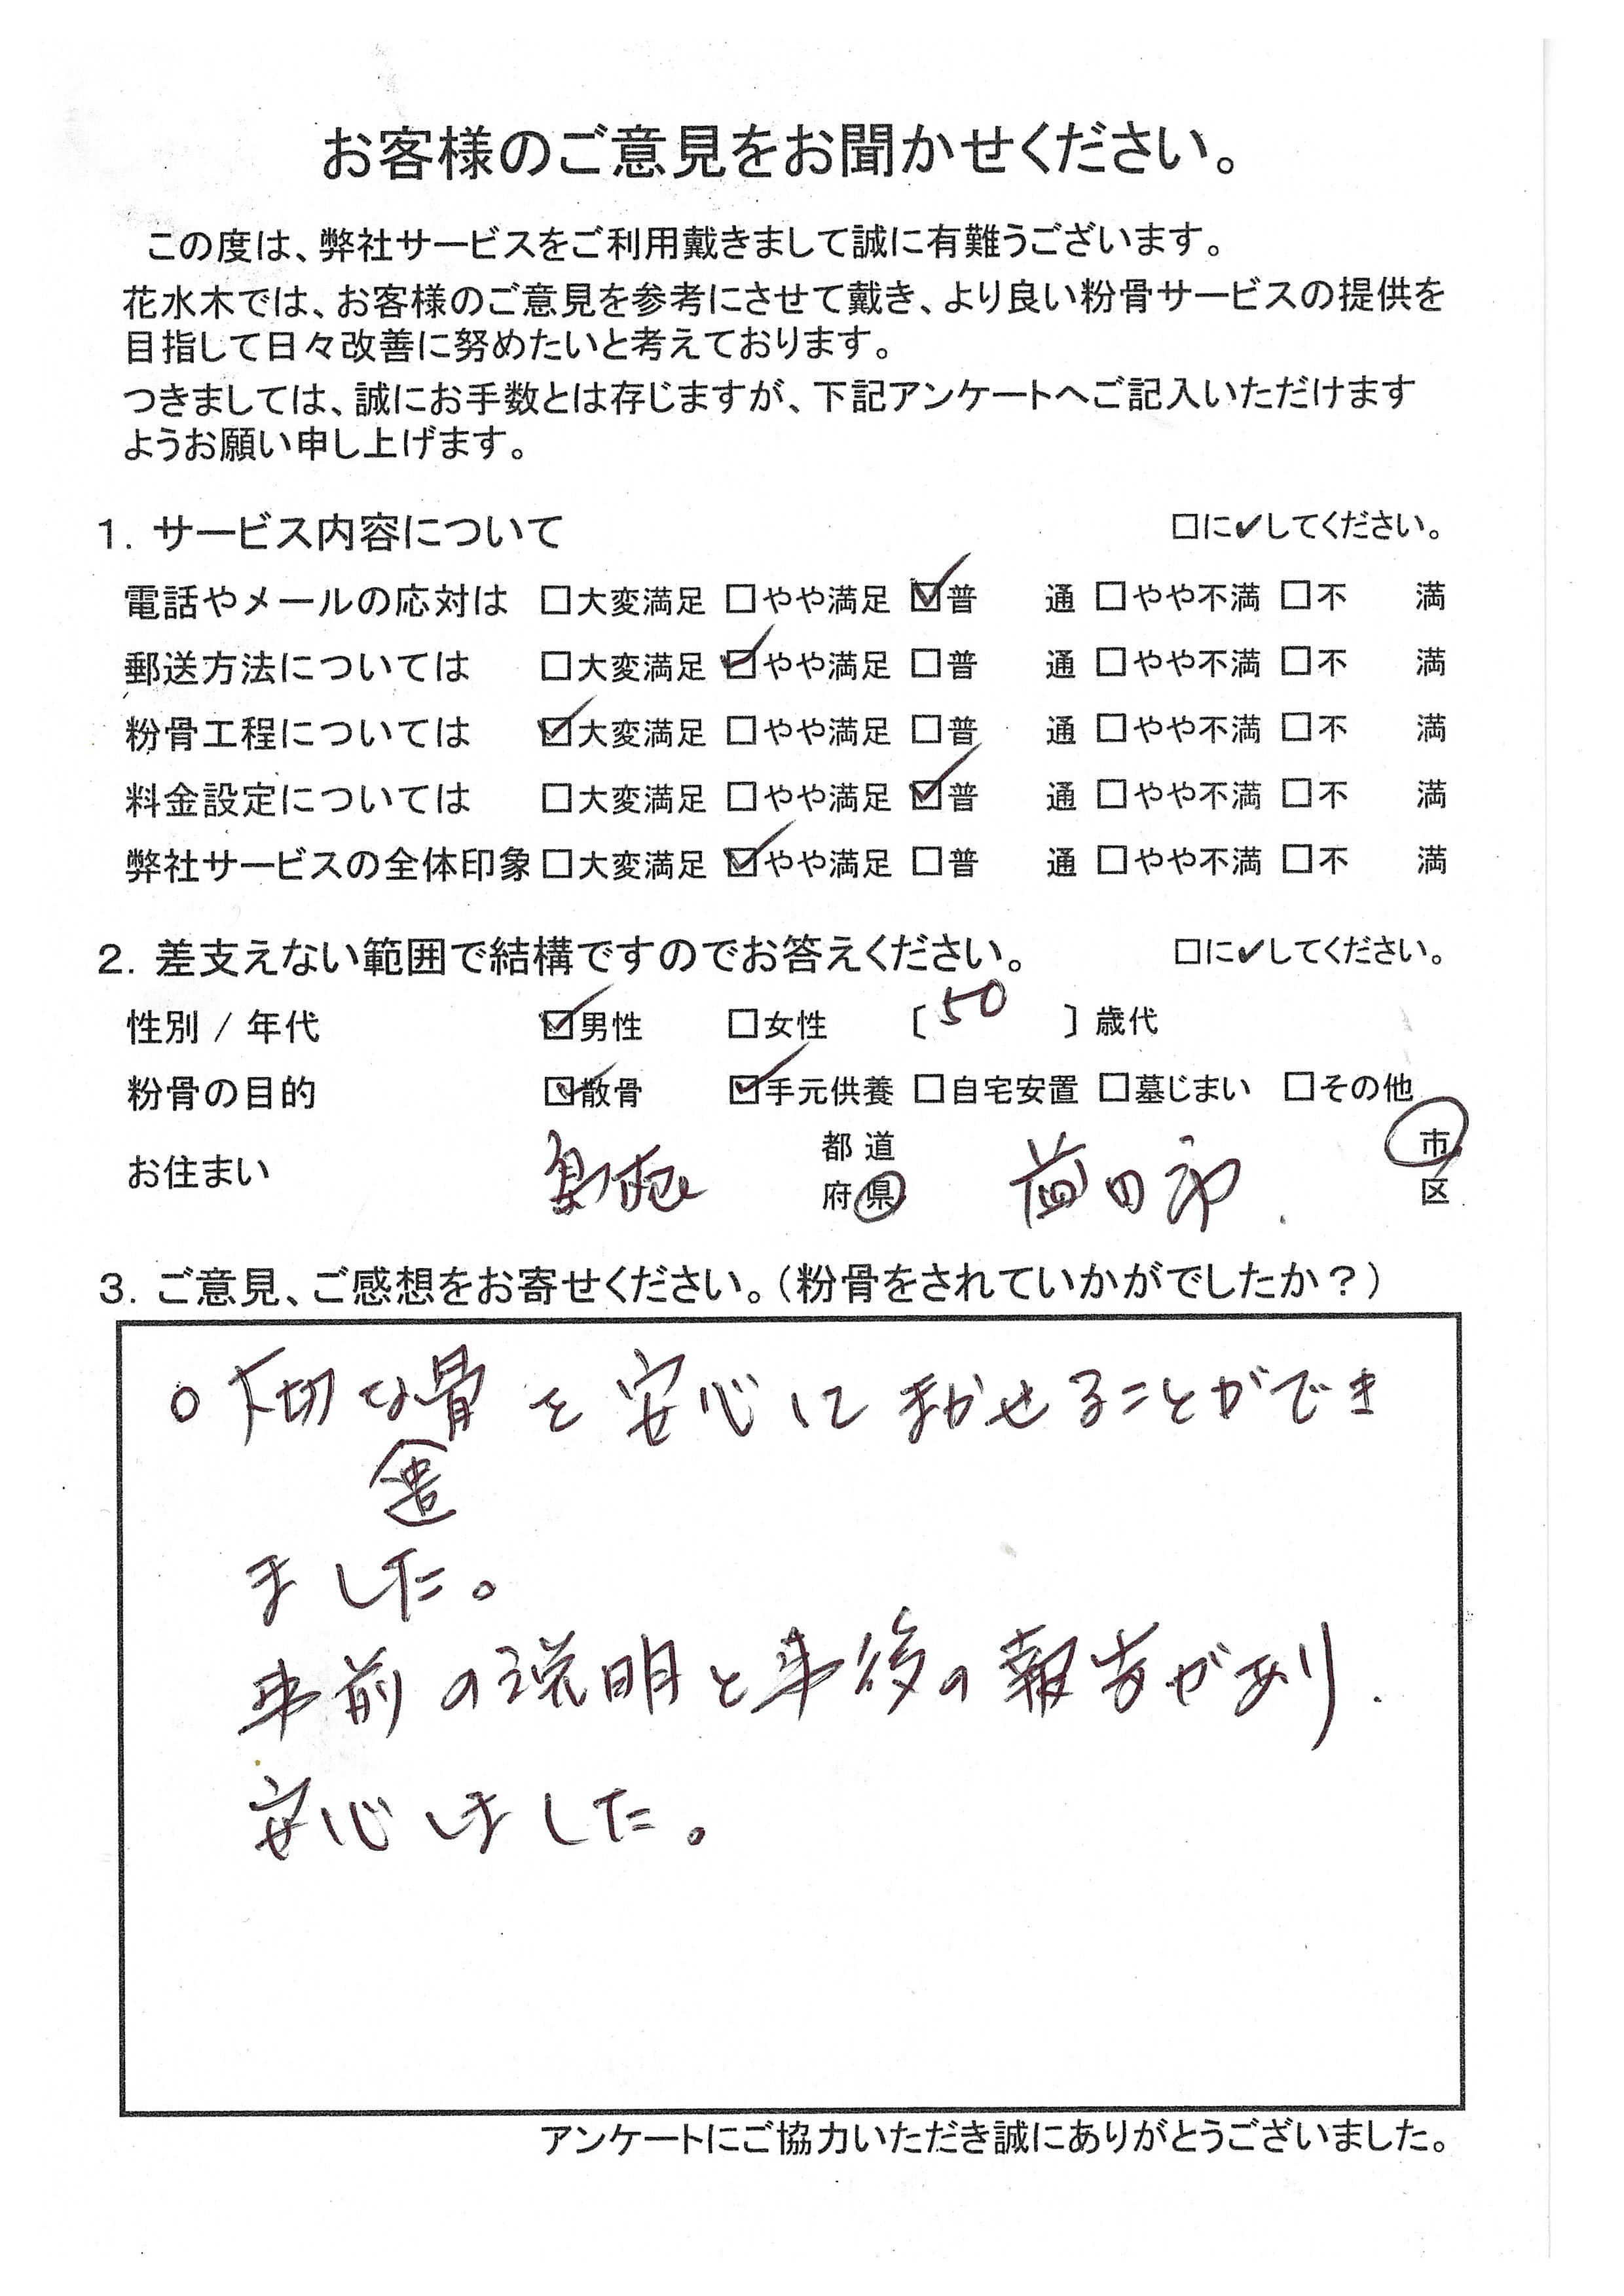 お客様のご意見をお聞かせください。
この度は、弊社サービスをご利用戴きまして誠に有難うございます。
花水木では、お客様のご意見を参考にさせて戴き、より良い粉骨サービスの提供を
目指して日々改善に努めたいと考えております。
つきましては、誠にお手数とは存じますが、下記アンケートへご記入いただけます
ようお願い申し上げます。
1. サービス内容について □に✓してください。
電話やメールの応対は □大変満足 □やや満足 ☑普 通 □やや不満 □不 満
郵送方法については □大変満足 ☑やや満足 □普 通 □やや不満 □不 満
粉骨工程については ☑大変満足 □やや満足 □普 通 □やや不満 □不 満
料金設定については □大変満足 □やや満足 ☑普 通 □やや不満 □不 満
弊社サービスの全体印象 □大変満足 ☑やや満足 □普 通 □やや不満 □不 満
2. 差支えない範囲で結構ですのでお答えください。 □に✓してください。
性別 / 年代 ☑男性 □女性 〔 50 〕歳代
粉骨の目的 ☑散骨 ☑手元供養 □自宅安置 □墓じまい □その他
お住まい 島根 都道府県 益田市 市区
3. ご意見、ご感想をお寄せください。(粉骨をされていかがでしたか?)
○大切な骨を安心にまかせることができ
遺
ました。
事前の説明と事後の報告があり.
安心しました。
アンケートにご協力いただき誠にありがとうございました。